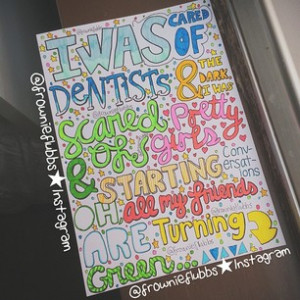 I WAS CARED
OF
DENTISTS & THE DARK, I WAS
Scared Pretty
OF girls
& STARTING Conversations
OH all my friends
ARE Turning
Green...
@frownieflubbs★Instagram
@frownieflubbs★Instagram